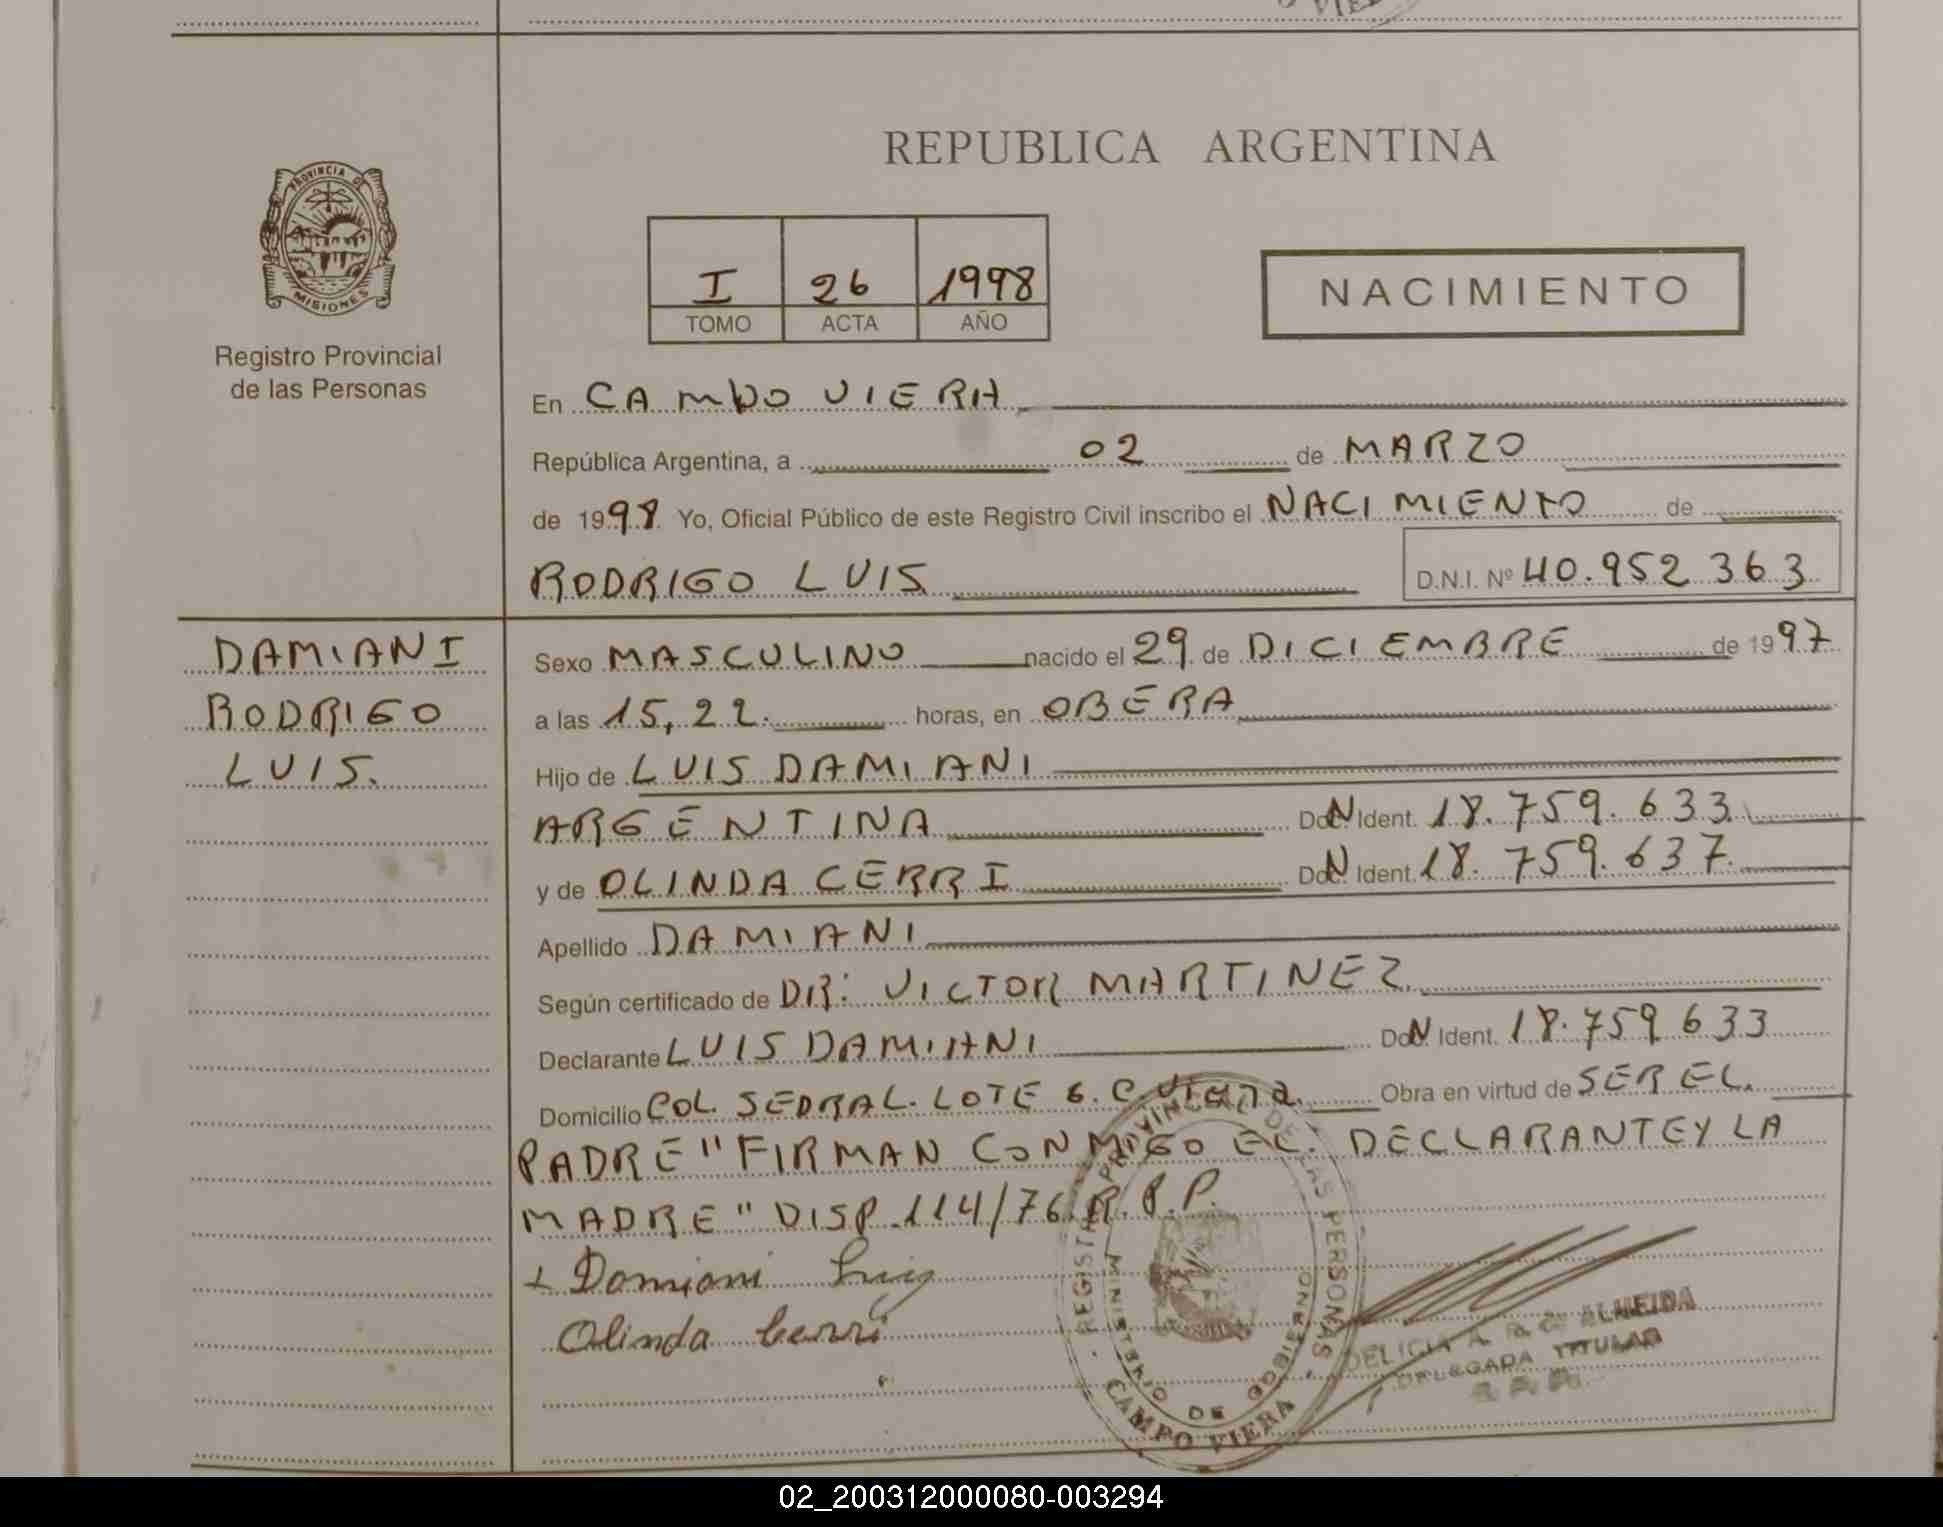 PROVINCIA DE
MISIONES
Registro Provincial
de las Personas
REPUBLICA ARGENTINA
I 26 1998
TOMO ACTA AÑO
NACIMIENTO
En CAMPO VIERA
República Argentina, a 02 de MARZO
de 1998 Yo, Oficial Público de este Registro Civil inscribo el NACIMIENTO de
RODRIGO LUIS D.N.I. Nº 40.952 363
DAMIANI
RODRIGO
LUIS.
Sexo MASCULINO nacido el 29 de DICIEMBRE de 1997
a las 15,22. horas, en OBERA
Hijo de LUIS DAMIANI
ARGENTINA DocN Ident. 18.759.633.
y de OLINDA CERRI DocN Ident. 18.759.637.
Apellido DAMIANI
Según certificado de DR: VICTOR MARTINEZ
Declarante LUIS DAMIANI DocN Ident. 18.759 633
Domicilio COL. SEDRAL. LOTE 6. C. Viera. Obra en virtud de SER EL.
PADRE "FIRMAN CONMIGO EL. DECLARANTE Y LA
MADRE" DISP. 114/76.R.P.P.
Damiani Luis
Olinda Cerri
REGISTRO PROVINCIAL DE LAS PERSONAS
MINISTERIO DE GOBIERNO
CAMPO VIERA
DELICIA A. ALMEIDA
DELEGADA TITULAR
02_200312000080-003294